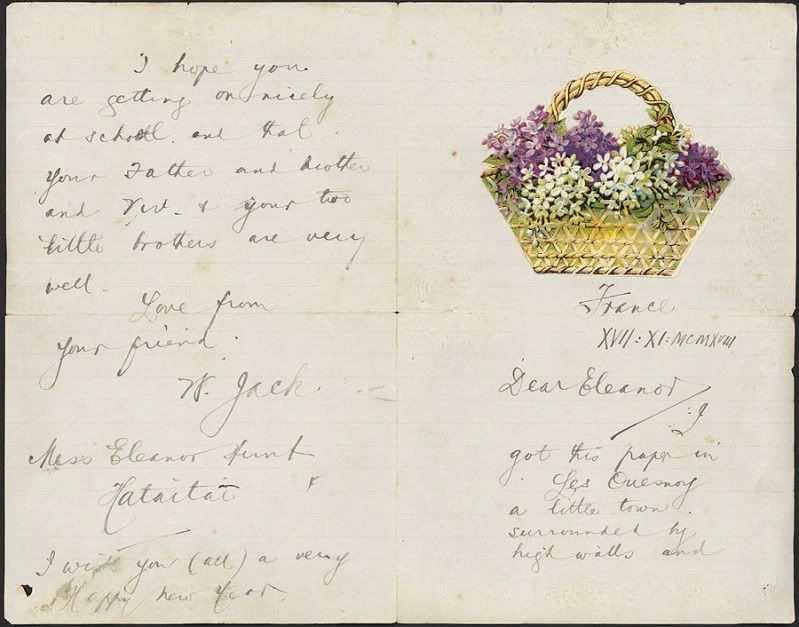 I hope you
are getting on nicely
at school. and that
your Father and Mother
and Viv. & your two
little brothers are very
well.
Love from
your friend.
W. Jack.
Miss Eleanor Hunt
Hataitai
I wish you (all) a very
Happy new Year.
France
XVII:XI:MCMXVIII
Dear Eleanor
I
got this paper in
Les Quesnoy
a little town.
surrounded by
high walls and